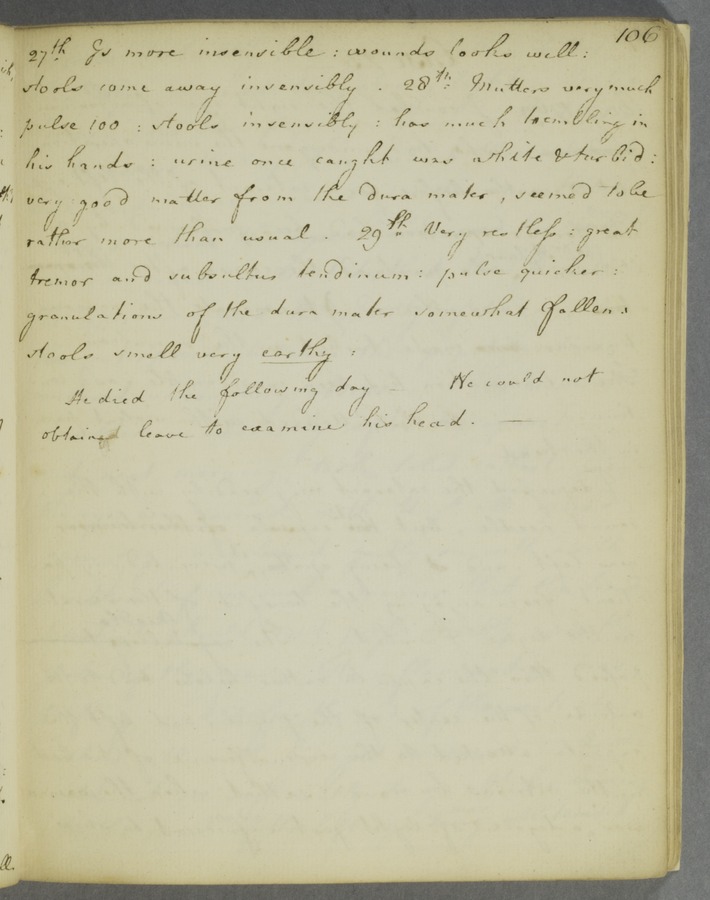 106
27th Is more insensible : wounds looks well :
stools come away insensibly . 28th Mutters very much
pulse 100 : stools insensibly : has much trembling in
his hands : urine once caught was white & turbid :
very good matter from the dura mater , seemed to be
rather more than usual . 29th Very restless : great
tremor and subsultus tendinum : pulse quicker :
granulations of the dura mater somewhat fallen :
stools smell very earthy :
He died the following day — He could not
obtain leave to examine his head . —